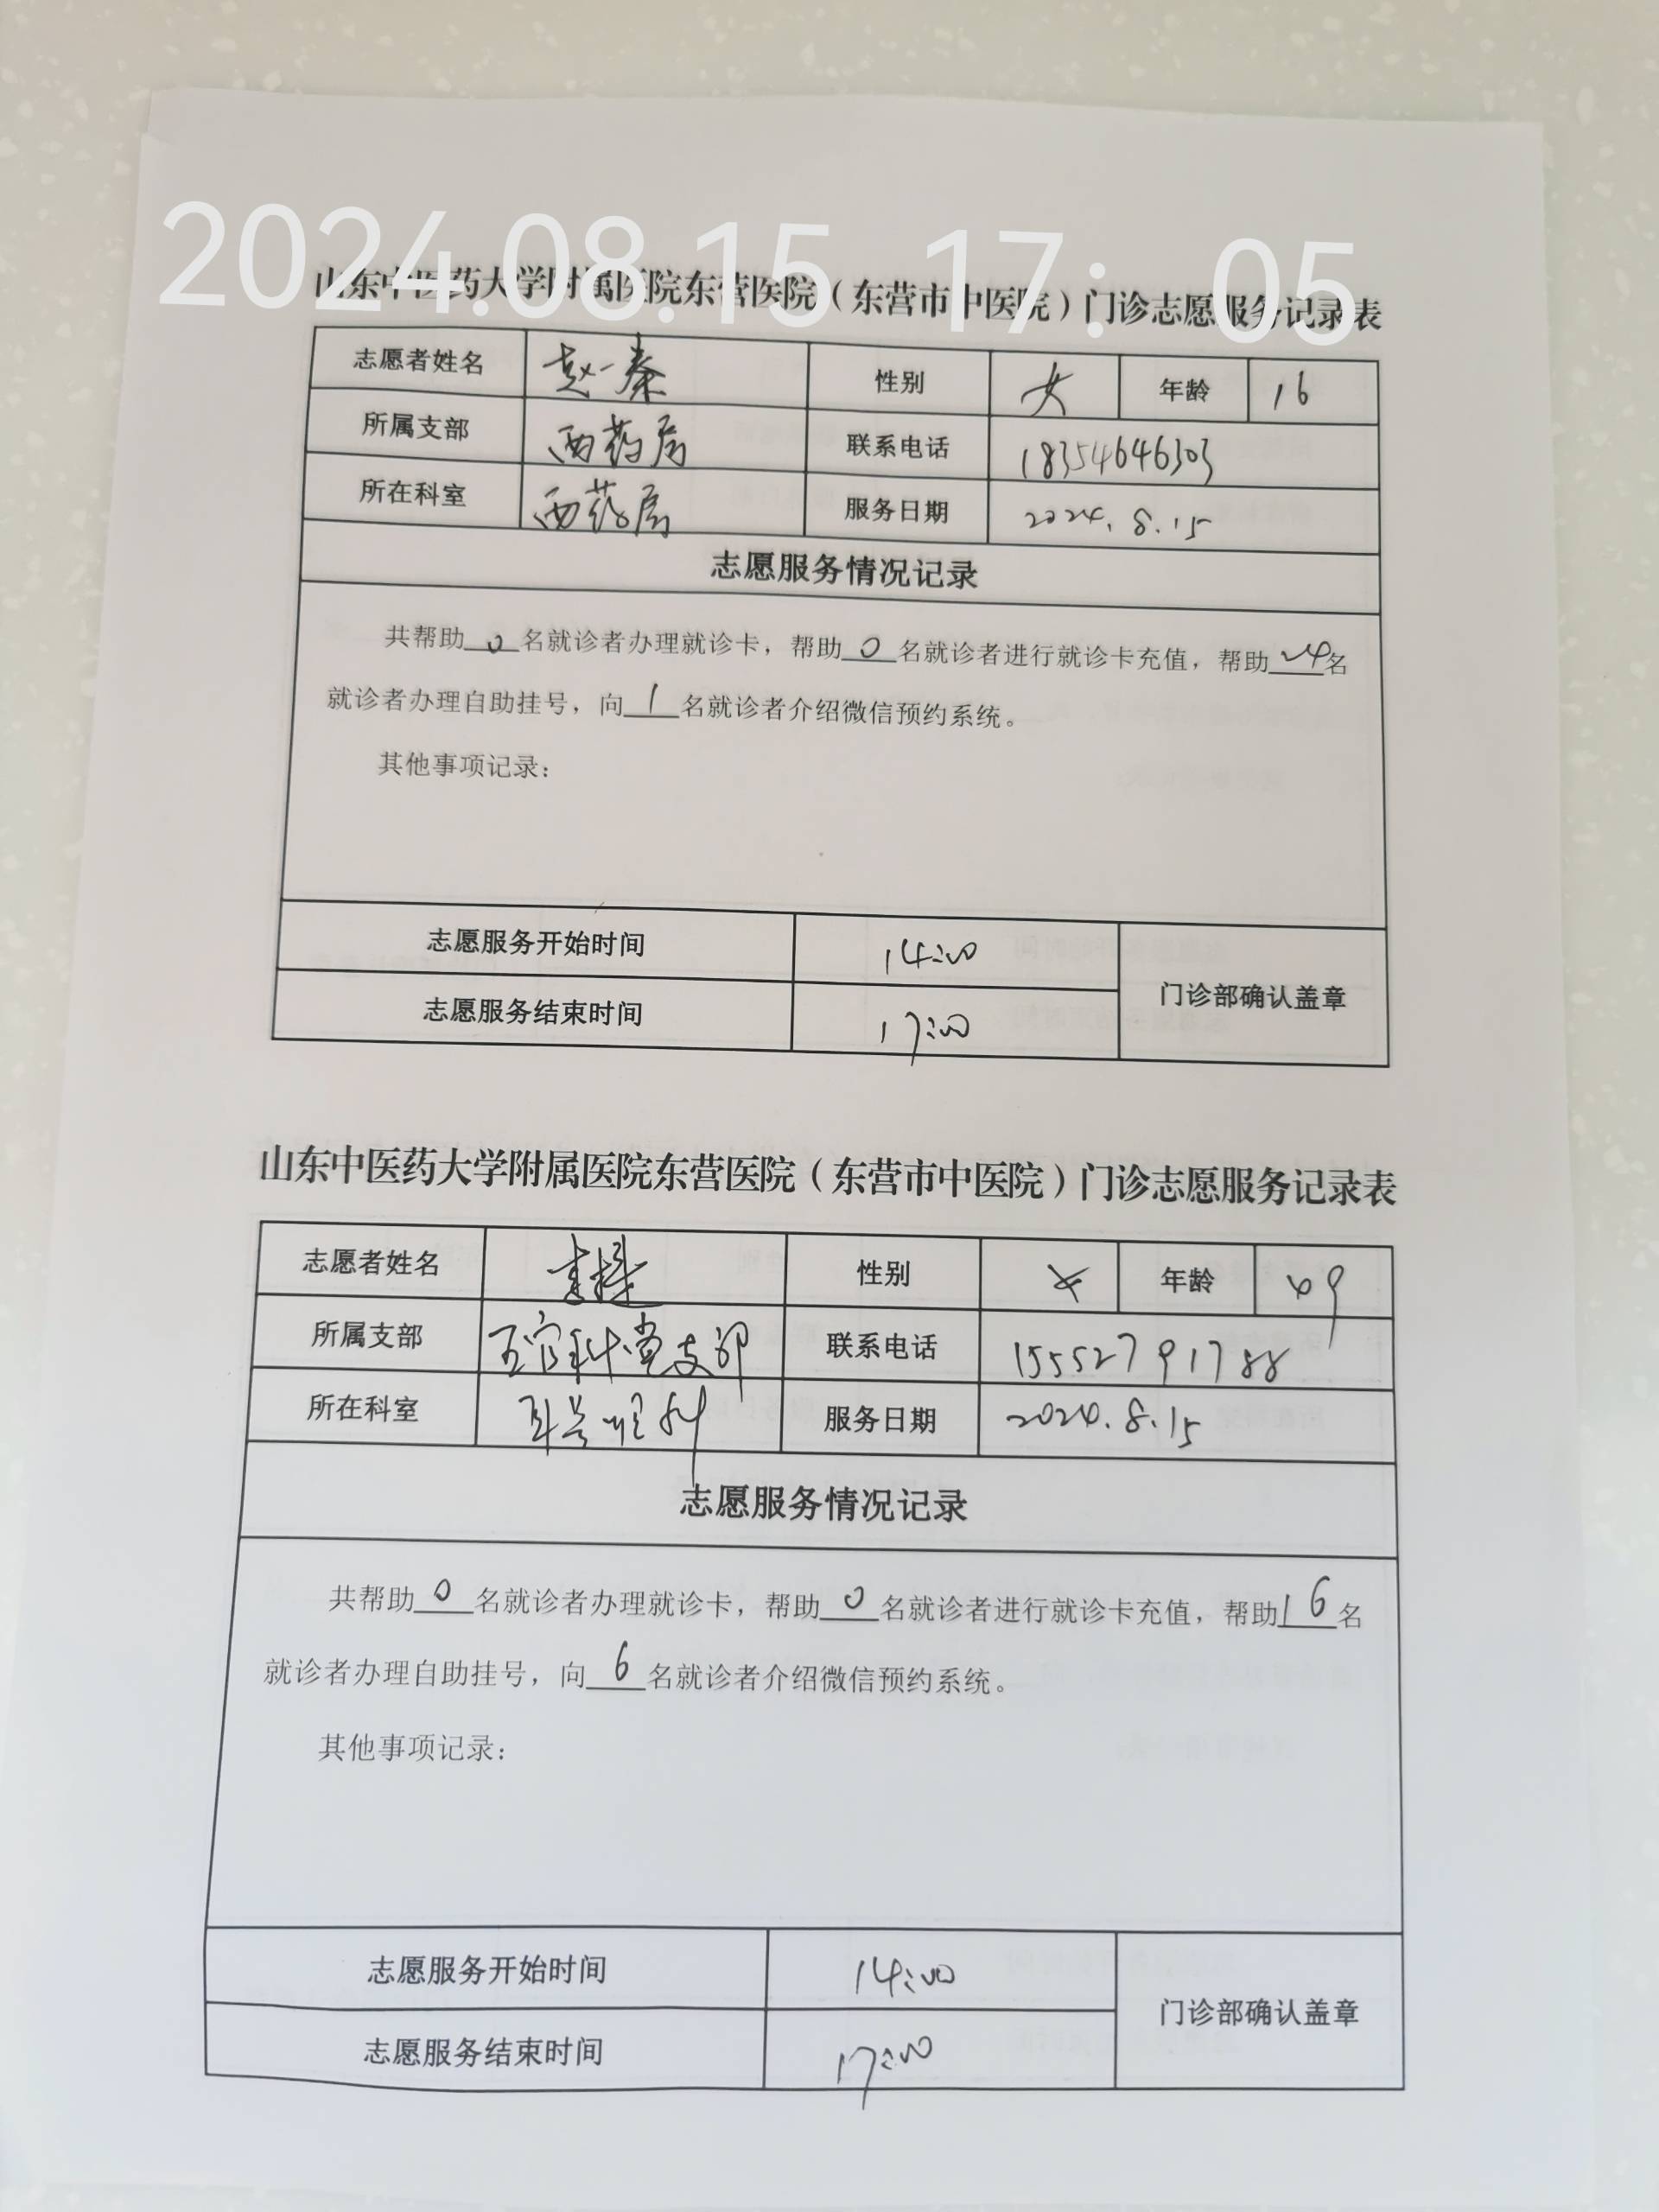 2024.08.15 17:05
山东中医药大学附属医院东营医院（东营市中医院）门诊志愿服务记录表
志愿者姓名 赵一秦 性别 女 年龄 16
所属支部 西药房 联系电话 18354646303
所在科室 西药房 服务日期 2024.8.15
志愿服务情况记录
共帮助 0 名就诊者办理就诊卡，帮助 0 名就诊者进行就诊卡充值，帮助 24 名
就诊者办理自助挂号，向 1 名就诊者介绍微信预约系统。
其他事项记录：
志愿服务开始时间 14:00
门诊部确认盖章
志愿服务结束时间 17:00
山东中医药大学附属医院东营医院（东营市中医院）门诊志愿服务记录表
志愿者姓名 性别 女 年龄 49
所属支部 五官科党支部 联系电话 15552791788
所在科室 耳鼻喉科 服务日期 2024.8.15
志愿服务情况记录
共帮助 0 名就诊者办理就诊卡，帮助 0 名就诊者进行就诊卡充值，帮助 16 名
就诊者办理自助挂号，向 6 名就诊者介绍微信预约系统。
其他事项记录：
志愿服务开始时间 14:00
门诊部确认盖章
志愿服务结束时间 17:00